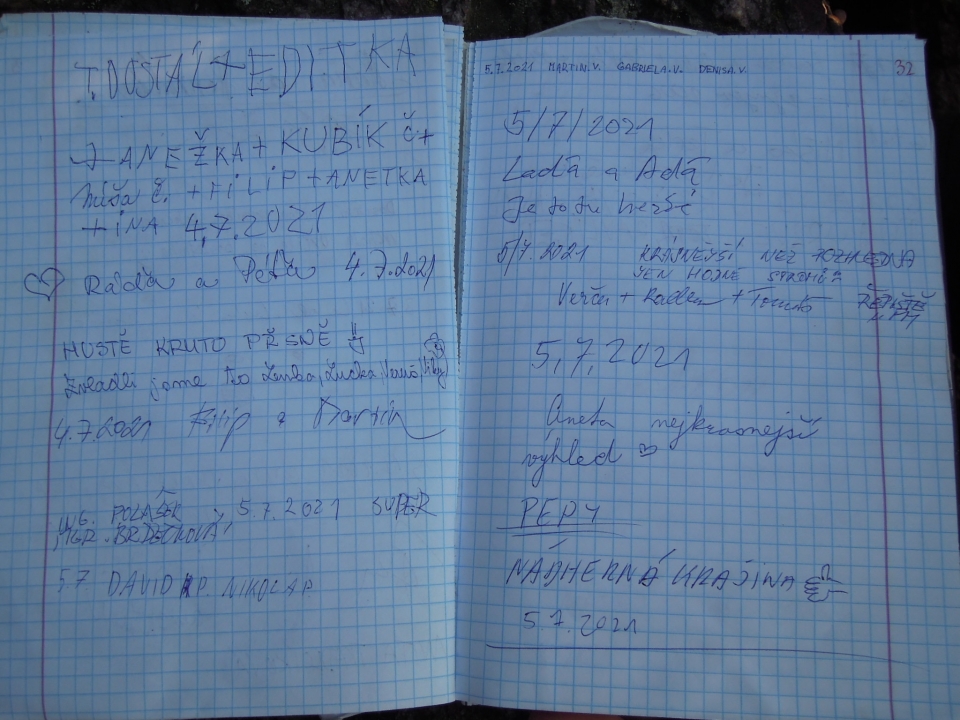 T. DOSTÁL + EDITKA
+ ANEŽKA + KUBÍK Č +
Míša Č. + FILIP + ANETKA
+ INA 4,7.2021
Ráďa a Péťa 4.7.2021
HUSTĚ KRUTO PŘSNĚ
Zvládli jsme to Lenka, Lucka, Veruš,
4.7.2021 Filip a Martin
ING. POLÁŠEK, 5.7.2021 SUPER
MGR. BRDEČKOVÁ
5.7 DAVID P. NIKOLA P.
5.7.2021 MARTIN.V. GABRIELA.V. DENISA.V. 32
5/7/2021
Laďa a Adá
Je to tu hezké
5/7.2021 KRÁSNĚJŠÍ NEŽ ROZHLEDNA
JEN HODNĚ
Verča + Radek + Tomáš ŘEPIŠTĚ
5,7,2021
Aneta nejkrásnejší
výhled
PEPY
NÁDHERNÁ KRAJINA
5.7.2021